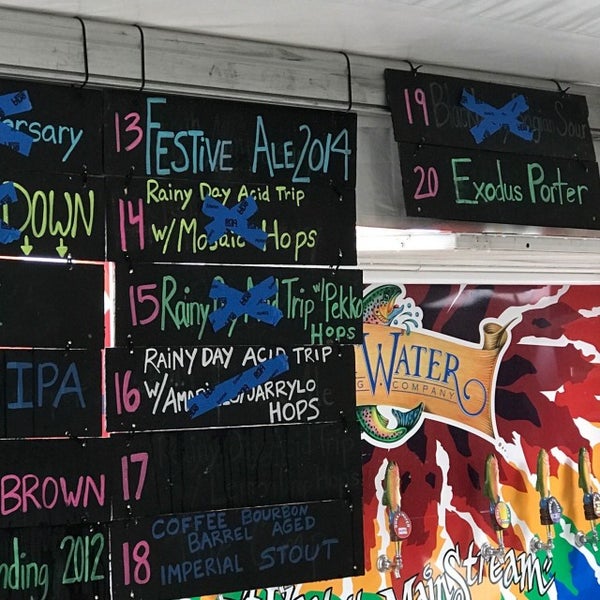 ersary
DOWN
IPA
BROWN
nding 2012
13 FESTIVE ALE 2014
14 Rainy Day Acid Trip
w/ Mosaic Hops
15 Rainy Day Acid Trip w/ Pekko
HOPS
16 RAINY DAY ACID TRIP
W/ JARRYLO
HOPS
17
18 COFFEE BOURBON
BARREL AGED
IMPERIAL STOUT
19 Sour
20 Exodus Porter
WATER
G COMPANY
MainStream